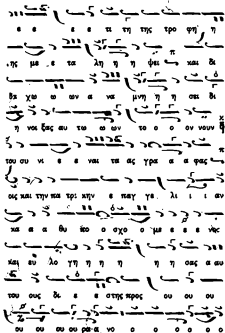 ε ε ε ε τι της τρο φη η
ης με ε τα λη η η ψει και δι
δα χω ω ων α να μνη η η σει δι
η νοι ξας αυ τω ω ων το ο ον νουν
του συ νι ε ε ναι τας γρα α α φας
οις και την πα τρι κην ε παγ γε λι ι αν
κα α α θυ πο ο σχο ο με ε ε νος
και ευ λο γη η η η σας α αυ
το ους δι ε ε στης προς ου ου ου
ου ου ου ου ρα α νο ο ο ο ο ο